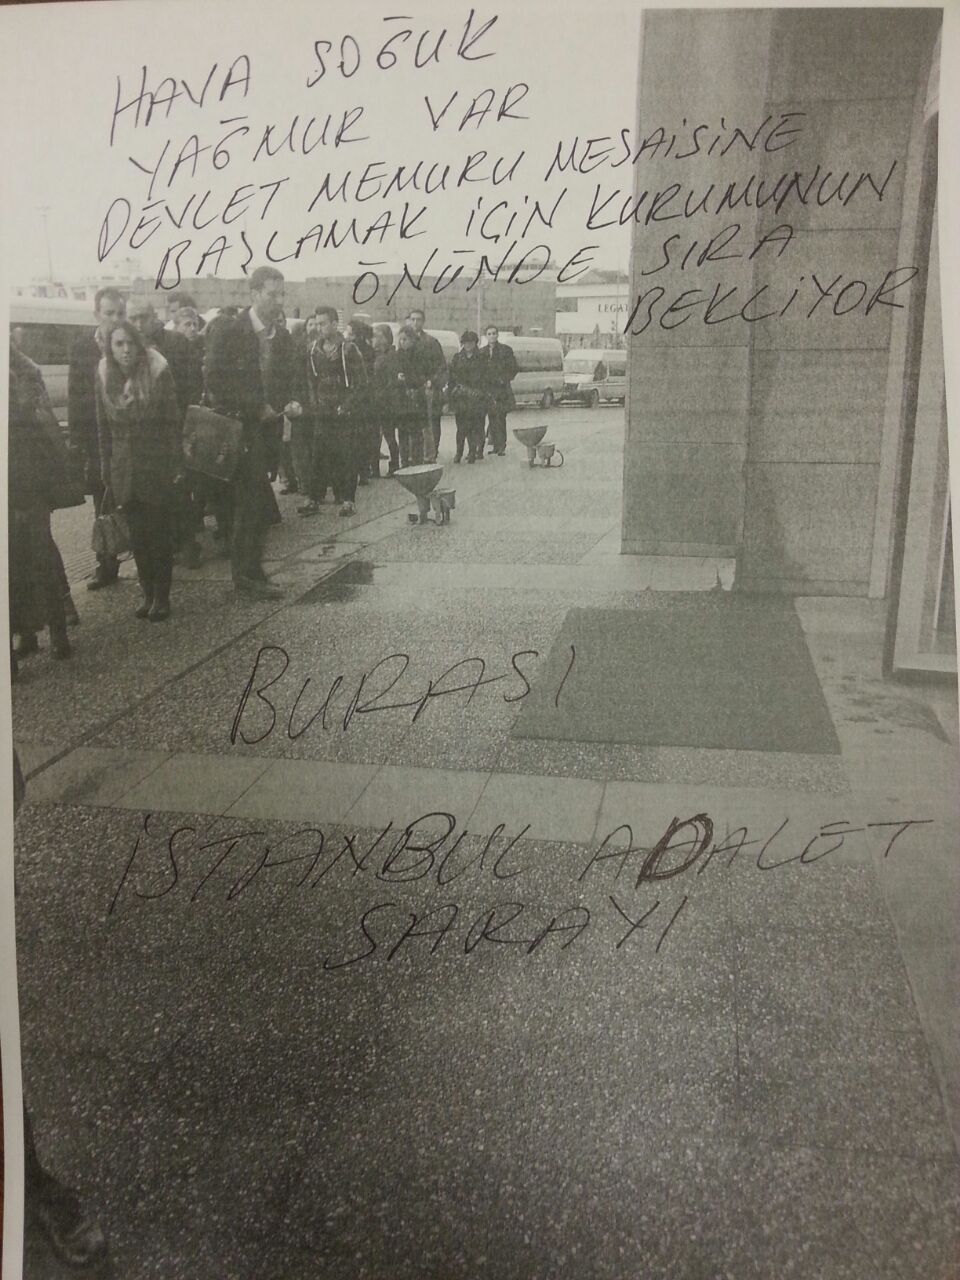 HAVA SOĞUK
YAĞMUR VAR
DEVLET MEMURU MESAİSİNE
BAŞLAMAK İÇİN KURUMUNUN
ÖNÜNDE SIRA
BEKLİYOR
LEGA
BURASI
İSTANBUL ADALET
SARAYI